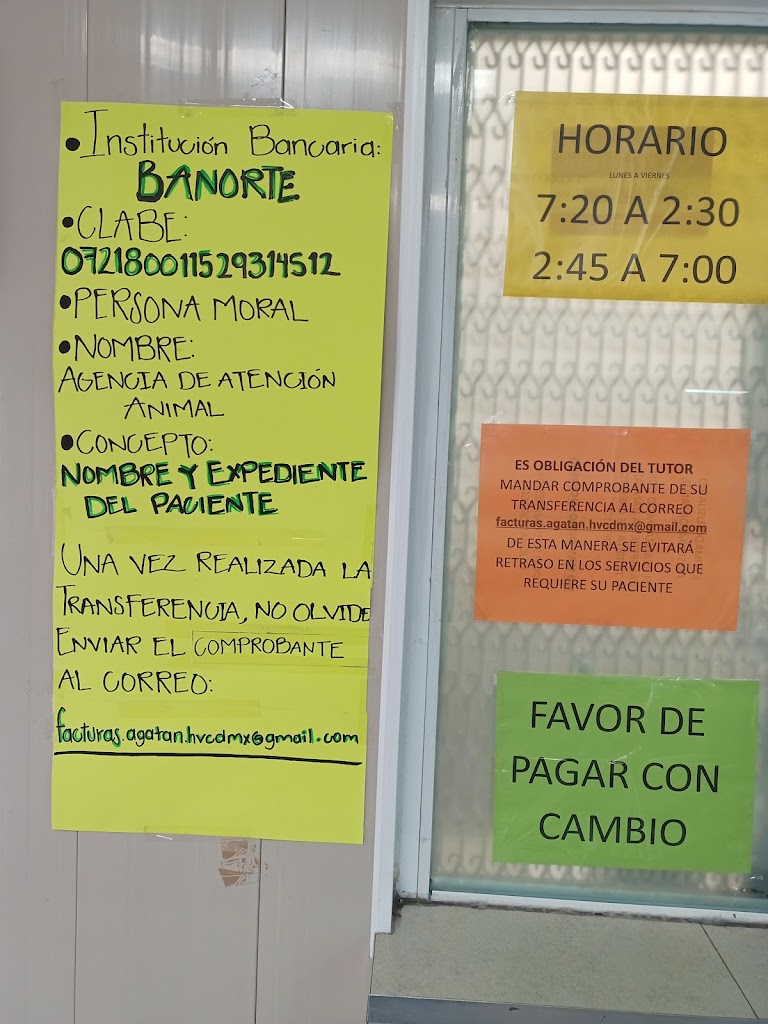 • Institución Bancaria:
BANORTE
• CLABE:
072180011529314512
• PERSONA MORAL
• NOMBRE:
AGENCIA DE ATENCIÓN
ANIMAL
• CONCEPTO:
NOMBRE Y EXPEDIENTE
DEL PACIENTE
UNA VEZ REALIZADA LA
TRANSFERENCIA, NO OLVIDE
ENVIAR EL COMPROBANTE
AL CORREO:
facturas.agatan.hvcdmx@gmail.com
HORARIO
LUNES A VIERNES
7:20 A 2:30
2:45 A 7:00
ES OBLIGACIÓN DEL TUTOR
MANDAR COMPROBANTE DE SU
TRANSFERENCIA AL CORREO
facturas.agatan.hvcdmx@gmail.com
DE ESTA MANERA SE EVITARÁ
RETRASO EN LOS SERVICIOS QUE
REQUIERE SU PACIENTE
FAVOR DE
PAGAR CON
CAMBIO